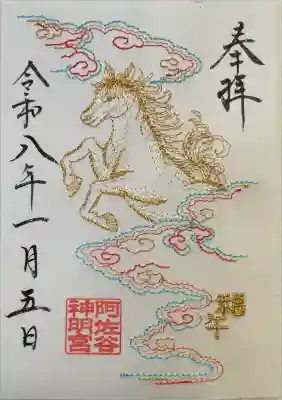 奉拝
午年
阿佐谷
神明宮
令和八年一月五日